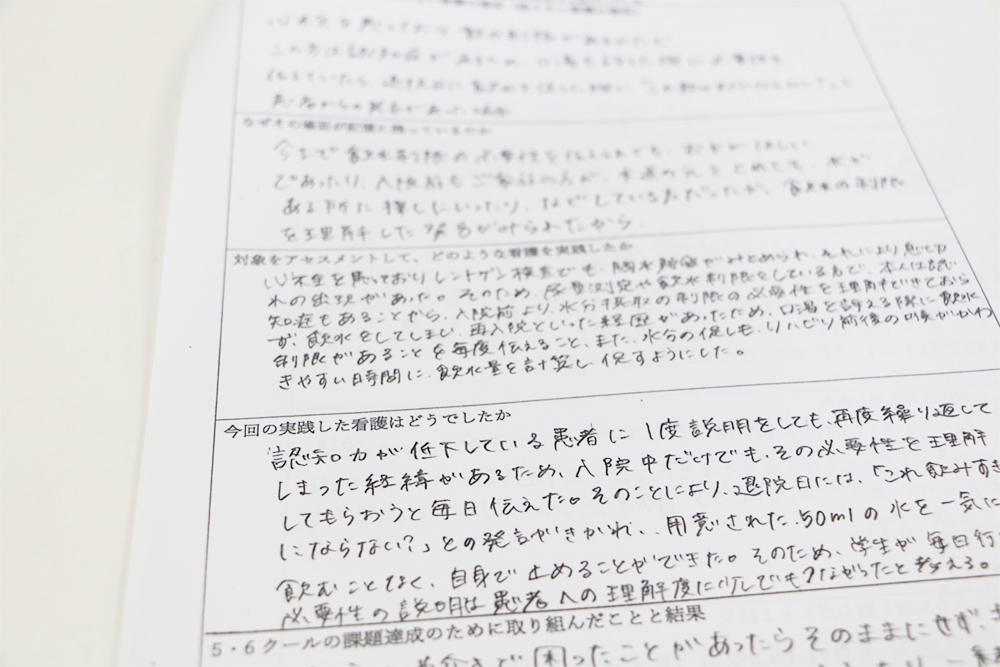 心不全を患っており 飲水制限があるかたで
なぜその場面が記憶に残っているのか
今まで飲水制限の必要性を伝えられても、お水がほしい
であったり、入院前もご家族の方が、水道の元をとめても、水が
ある所に探しにいったり、などしている方だったが、飲水の制限
を理解した発言がみられたから。
対象をアセスメントして、どのような看護を実践したか
心不全を患っておりレントゲン検査でも、胸水貯留がみとめられ、それにより息切
れの出現があった。そのため、尿量測定や飲水制限をしている方で、本人は認
知症もあることから、入院前より、水分摂取の制限の必要性を理解できておられ
ず、飲水をしてしまい、再入院といった経歴があったため、口渇を訴える際に飲水
制限があることを毎度伝えること、また、水分の促しも、リハビリ前後の口喉がかわ
きやすい日時間に、飲水量を計算し促すようにした。
今回の実践した看護はどうでしたか
認知力が低下している患者に1度説明をしても、再度繰り返して
しまった経緯があるため、入院中だけでも、その必要性を理解
してもらおうと毎日伝えた。そのことにより、退院日には、「これ飲みすぎ
にならない?」との発言がきかれ、用意された50mlの水を一気に
飲むことなく、自身で止めることができた。そのため、学生が毎日行
必要性の説明は患者への理解度に少しでもつながったと考える。
5・6クールの課題達成のために取り組んだことと結果
困ったことがあったらそのままにせず